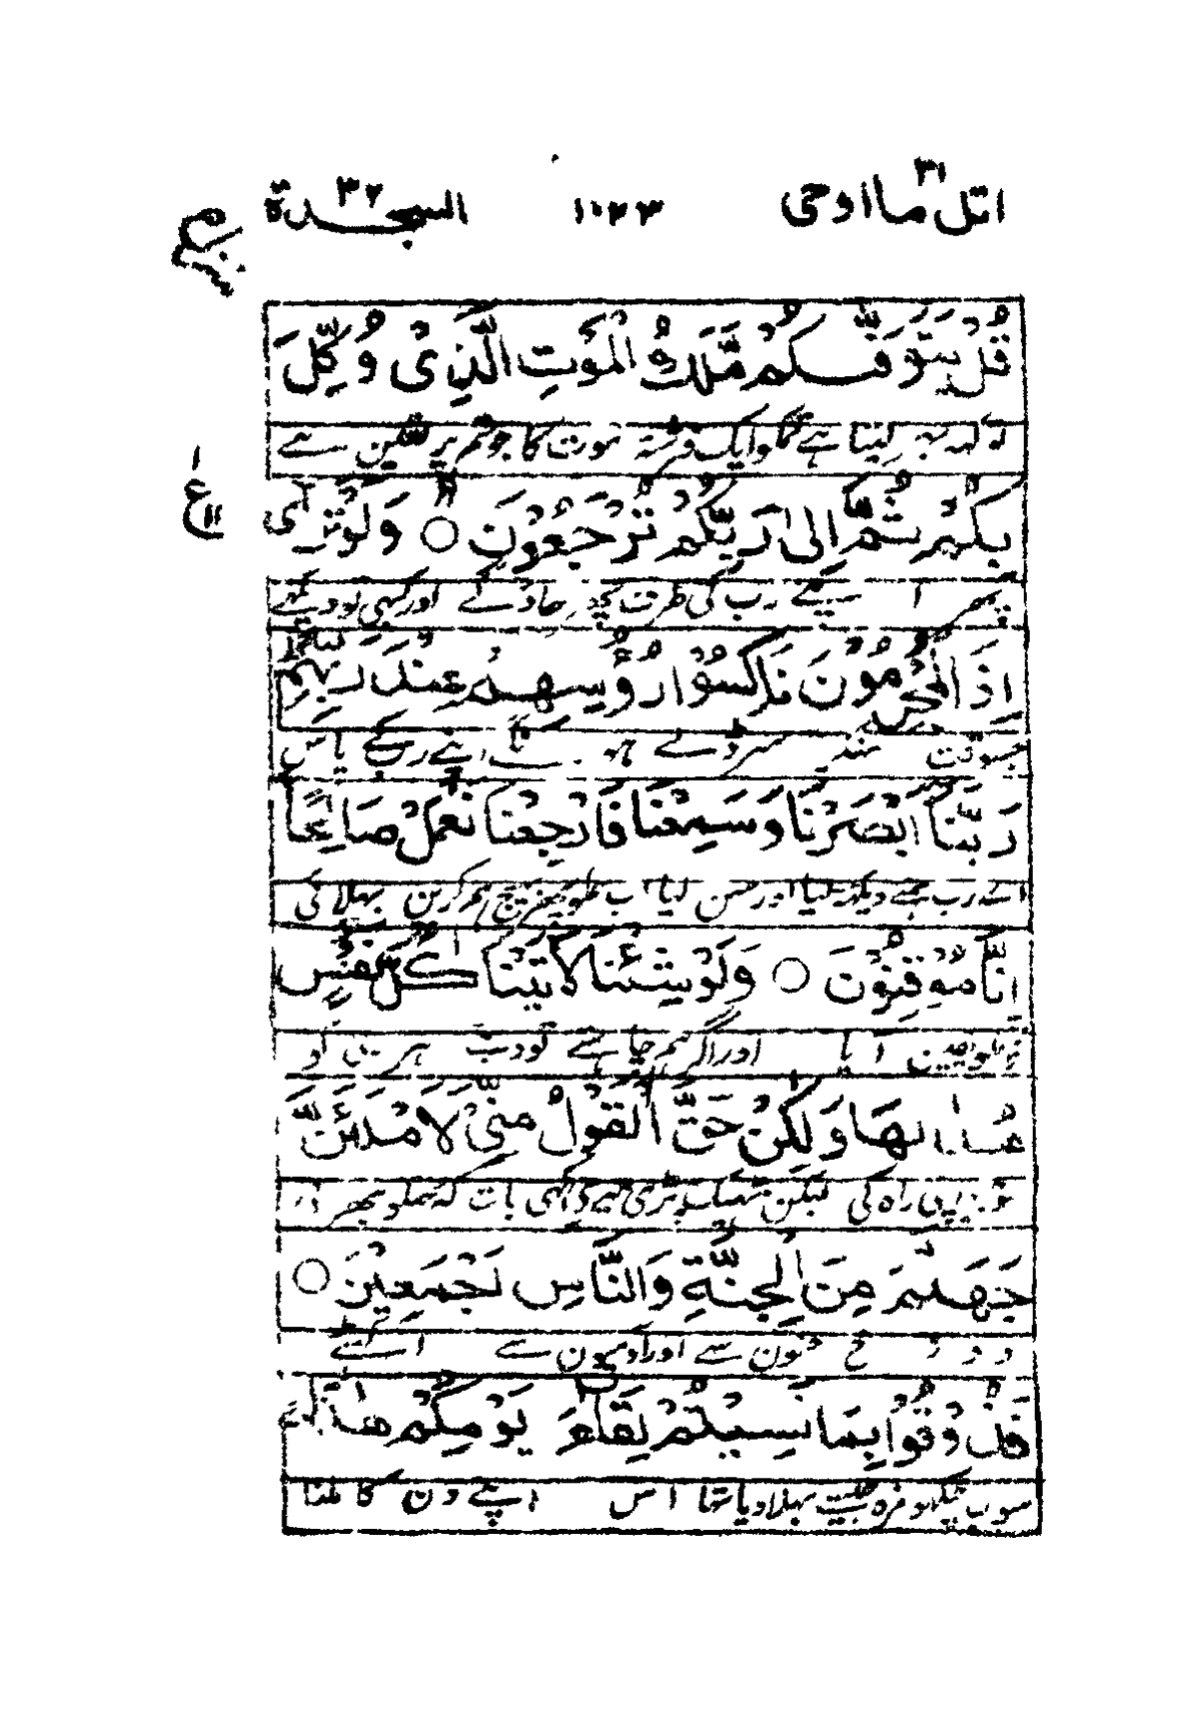 اتل ما اوحی ٢١ ١٠٢٣ السجدة ٣٢
منزل ٥
قُلْ يَتَوَفّٰىكُمْ مَّلَكُ الْمَوْتِ الَّذِىْ وُكِّلَ
لیتا ہے تمکو ایک فرشتہ موت کا جو تم پر تعین ہے
بِكُمْ ثُمَّ اِلٰى رَبِّكُمْ تُرْجَعُوْنَ ۝ وَلَوْ تَرٰٓى
ع ١١
پھر اپنے رب کی طرف اور کبھی تو دیکھے
اِذِ الْمُجْرِمُوْنَ نَاكِسُوْا رُءُوْسِهِمْ عِنْدَ رَبِّهِمْ
جسوقت سر ڈالے اپنے رب کے پاس
رَبَّنَآ اَبْصَرْنَا وَسَمِعْنَا فَارْجِعْنَا نَعْمَلْ صَالِحًا
اے رب ہمنے دیکھ لیا اور سن لیا اب ہمکو پھر بھیج ہم کرین بھلائی
اِنَّا مُوْقِنُوْنَ ۝ وَلَوْ شِئْنَا لَاٰتَيْنَا كُلَّ نَفْسٍ
آیا اور اگر ہم چاہتے تو دیتے ہر
هُدٰىهَا وَلٰكِنْ حَقَّ الْقَوْلُ مِنِّىْ لَاَمْلَئَنَّ
راہ کی لیکن ٹھیک پڑی میری کہی بات کہ مجکو بھرنی
جَهَنَّمَ مِنَ الْجِنَّةِ وَالنَّاسِ اَجْمَعِيْنَ ۝
جنون سے اور آدمیون سے اکٹھے
فَذُوْقُوْا بِمَا نَسِيْتُمْ لِقَآءَ يَوْمِكُمْ هٰذَا
سو اب چکھو مزہ جیسے بھلا دیا تھا اس اپنے دن کا ملنا